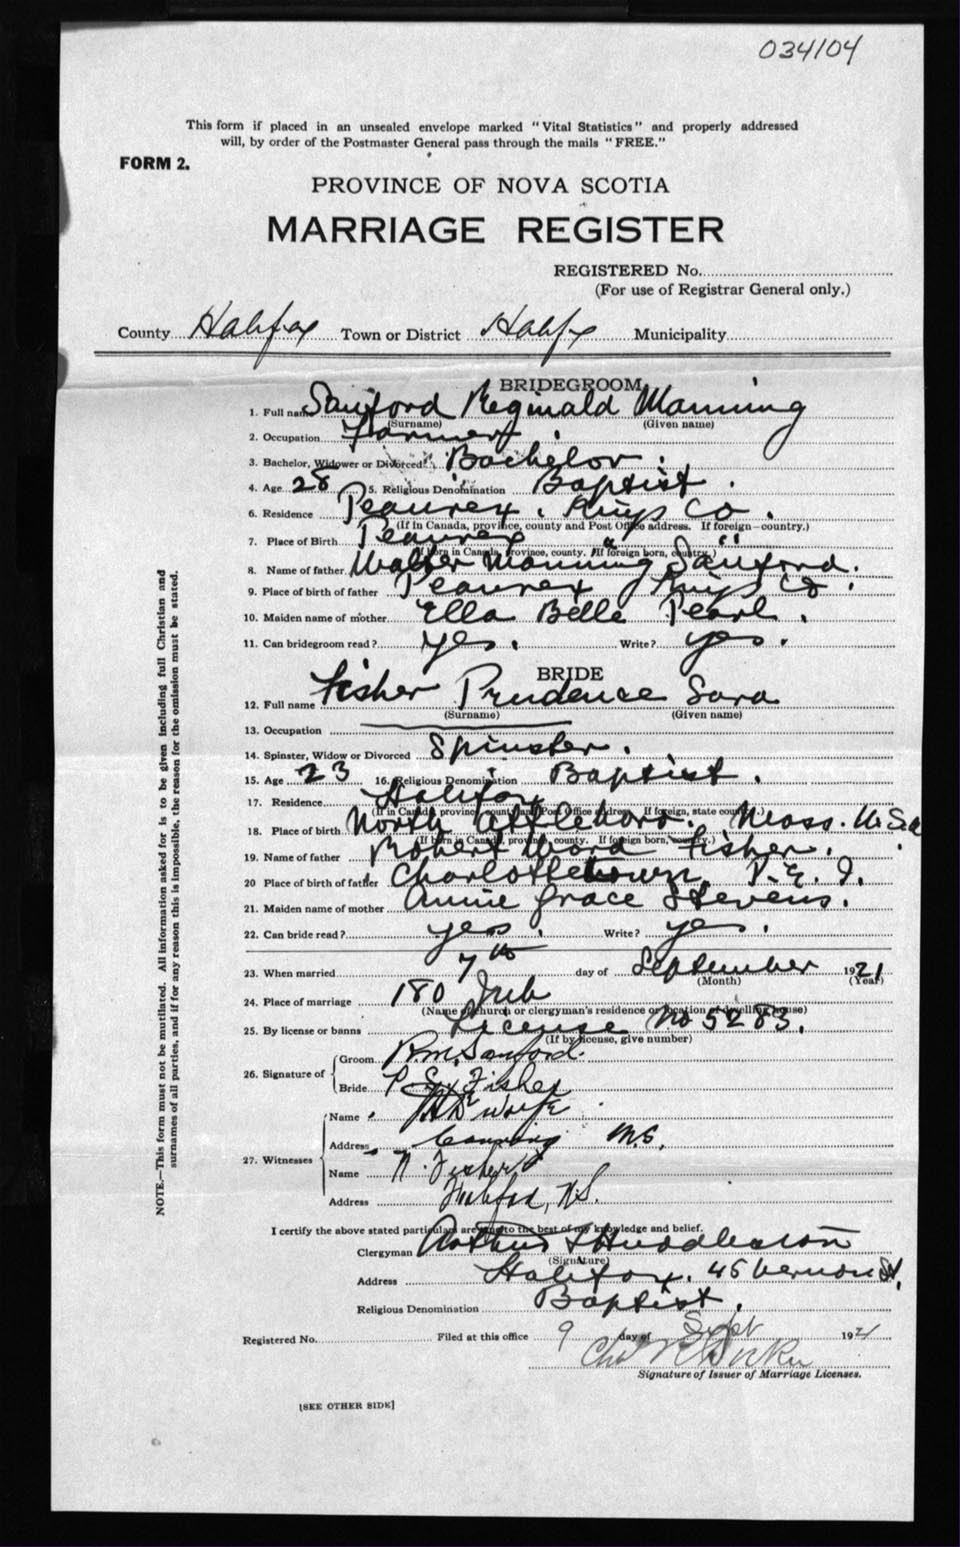 034104
This form if placed in an unsealed envelope marked "Vital Statistics" and properly addressed
will, by order of the Postmaster General pass through the mails "FREE."
FORM 2.
PROVINCE OF NOVA SCOTIA
MARRIAGE REGISTER
REGISTERED No.
(For use of Registrar General only.)
County Halifax Town or District Halifx Municipality
BRIDEGROOM
1. Full name Sanford Reginald Manning
(Surname) (Given name)
2. Occupation Farmer.
3. Bachelor, Widower or Divorced Bachelor.
4. Age 28 5. Religious Denomination Baptist.
6. Residence Peaurex. Kings Co.
(If in Canada, province, county and Post Office address. If foreign—country.)
7. Place of Birth Peaurex " "
(If born in Canada, province, county. If foreign born, country.)
8. Name of father Walter Manning Sanford.
9. Place of birth of father Peaurex Kings Co.
10. Maiden name of mother Ella Belle Pearl.
11. Can bridegroom read? yes. Write? yes.
BRIDE
12. Full name Fisher Prudence Sara
(Surname) (Given name)
13. Occupation
14. Spinster, Widow or Divorced Spinster.
15. Age 23 16. Religious Denomination Baptist.
17. Residence Halifax
(If in Canada, province, county and Post Office address. If foreign, state country.)
18. Place of birth North Attleboro. Mass. U.S.a.
(If born in Canada, province, county. If foreign born, country.)
19. Name of father Robert Ward Fisher.
20 Place of birth of father Charlottetown P.E.I.
21. Maiden name of mother Annie Grace Stevens.
22. Can bride read? yes. Write? yes.
23. When married 7th day of September 1921
(Month) (Year)
24. Place of marriage 180
(Name of church or clergyman's residence or location of dwelling house)
25. By license or banns License No 5283.
(If by license, give number)
26. Signature of Groom R.M. Sanford.
Bride P. S. Fisher
27. Witnesses
Name
Address Canning N.S.
Name N. Fisher
Address Halifax, N.S.
I certify the above stated particulars are true to the best of my knowledge and belief.
Clergyman Arthur Huddleston
(Signature)
Address Halifax. 45 Vernon St.
Religious Denomination Baptist.
Registered No. Filed at this office 9 day of Sept 1921
Signature of Issuer of Marriage Licenses.
[SEE OTHER SIDE]
NOTE.—This form must not be mutilated. All information asked for is to be given including full Christian and
surnames of all parties, and if for any reason this is impossible, the reason for the omission must be stated.